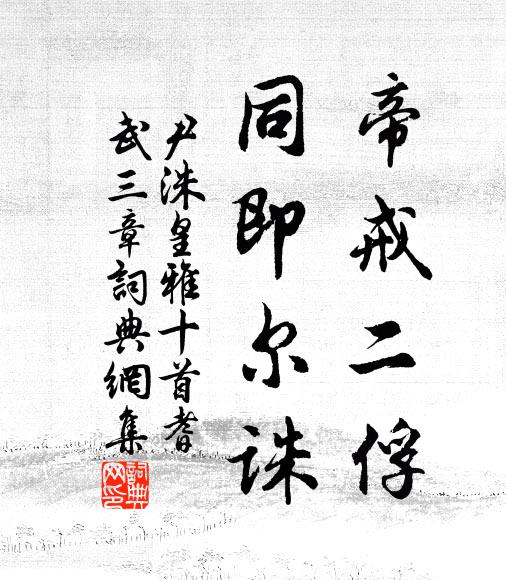 帝戒二俘
同即尔诛
尹洙皇雅十首耆
武三章詞典網集
詞典网印